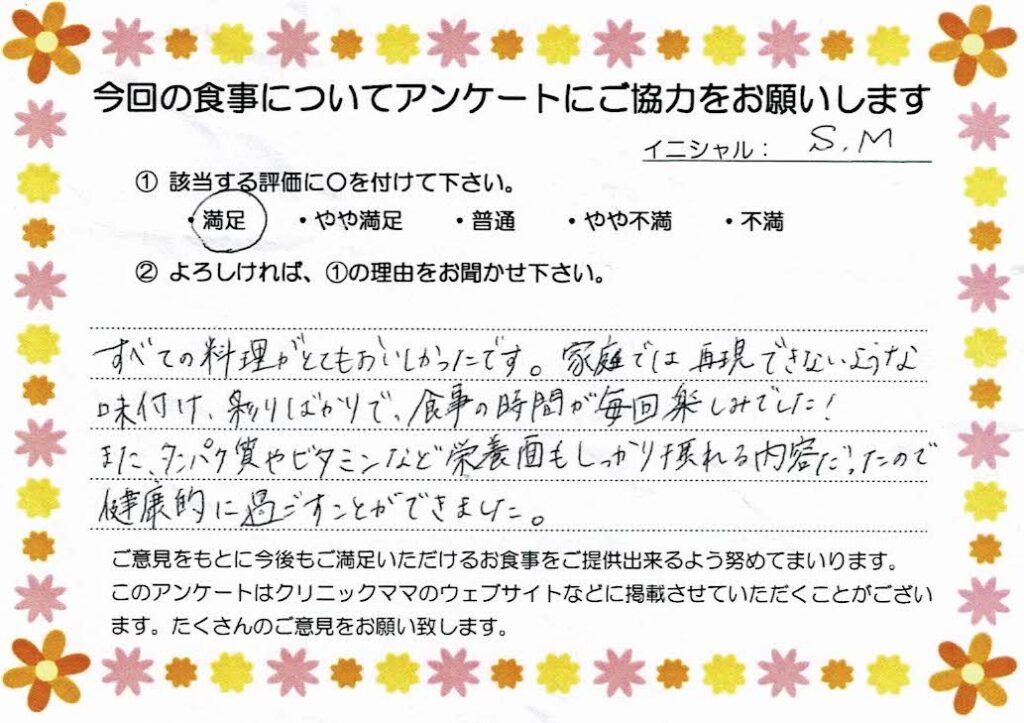 今回の食事についてアンケートにご協力をお願いします
イニシャル： S.M
① 該当する評価に〇を付けて下さい。
・満足 ・やや満足 ・普通 ・やや不満 ・不満
② よろしければ、①の理由をお聞かせ下さい。
すべての料理がとてもおいしかったです。家庭では再現できないような
味付け、彩りばかりで、食事の時間が毎回楽しみでした！
また、タンパク質やビタミンなど栄養面もしっかり摂れる内容だったので
健康的に過ごすことができました。
ご意見をもとに今後もご満足いただけるお食事をご提供出来るよう努めてまいります。
このアンケートはクリニックママのウェブサイトなどに掲載させていただくことがござい
ます。たくさんのご意見をお願い致します。